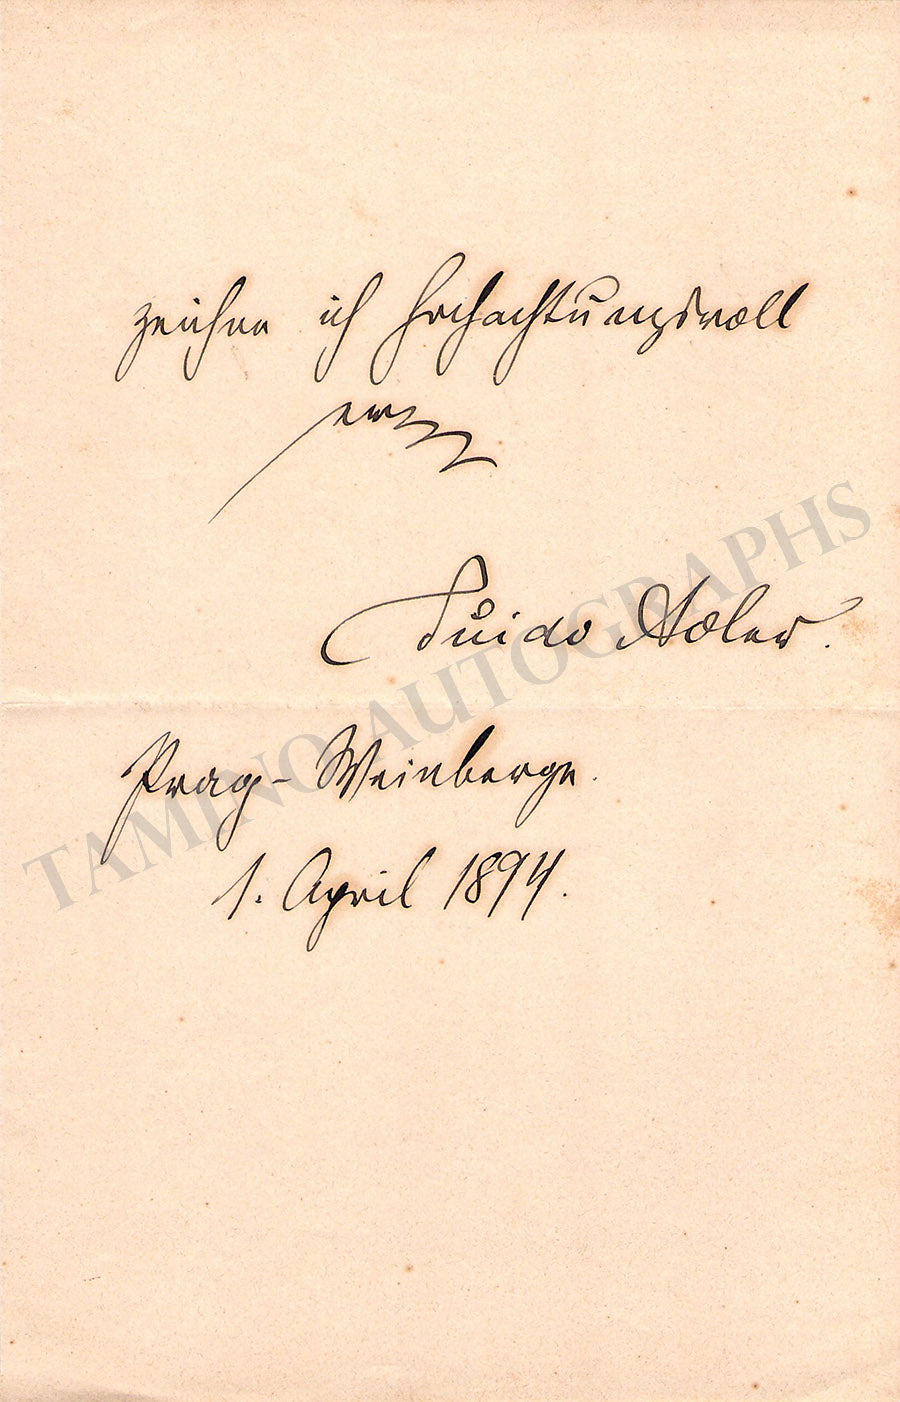 zeichne ich hochachtungsvoll
Guido Adler.
Prag-Weinberge.
1. April 1894.
TAMINO AUTOGRAPHS